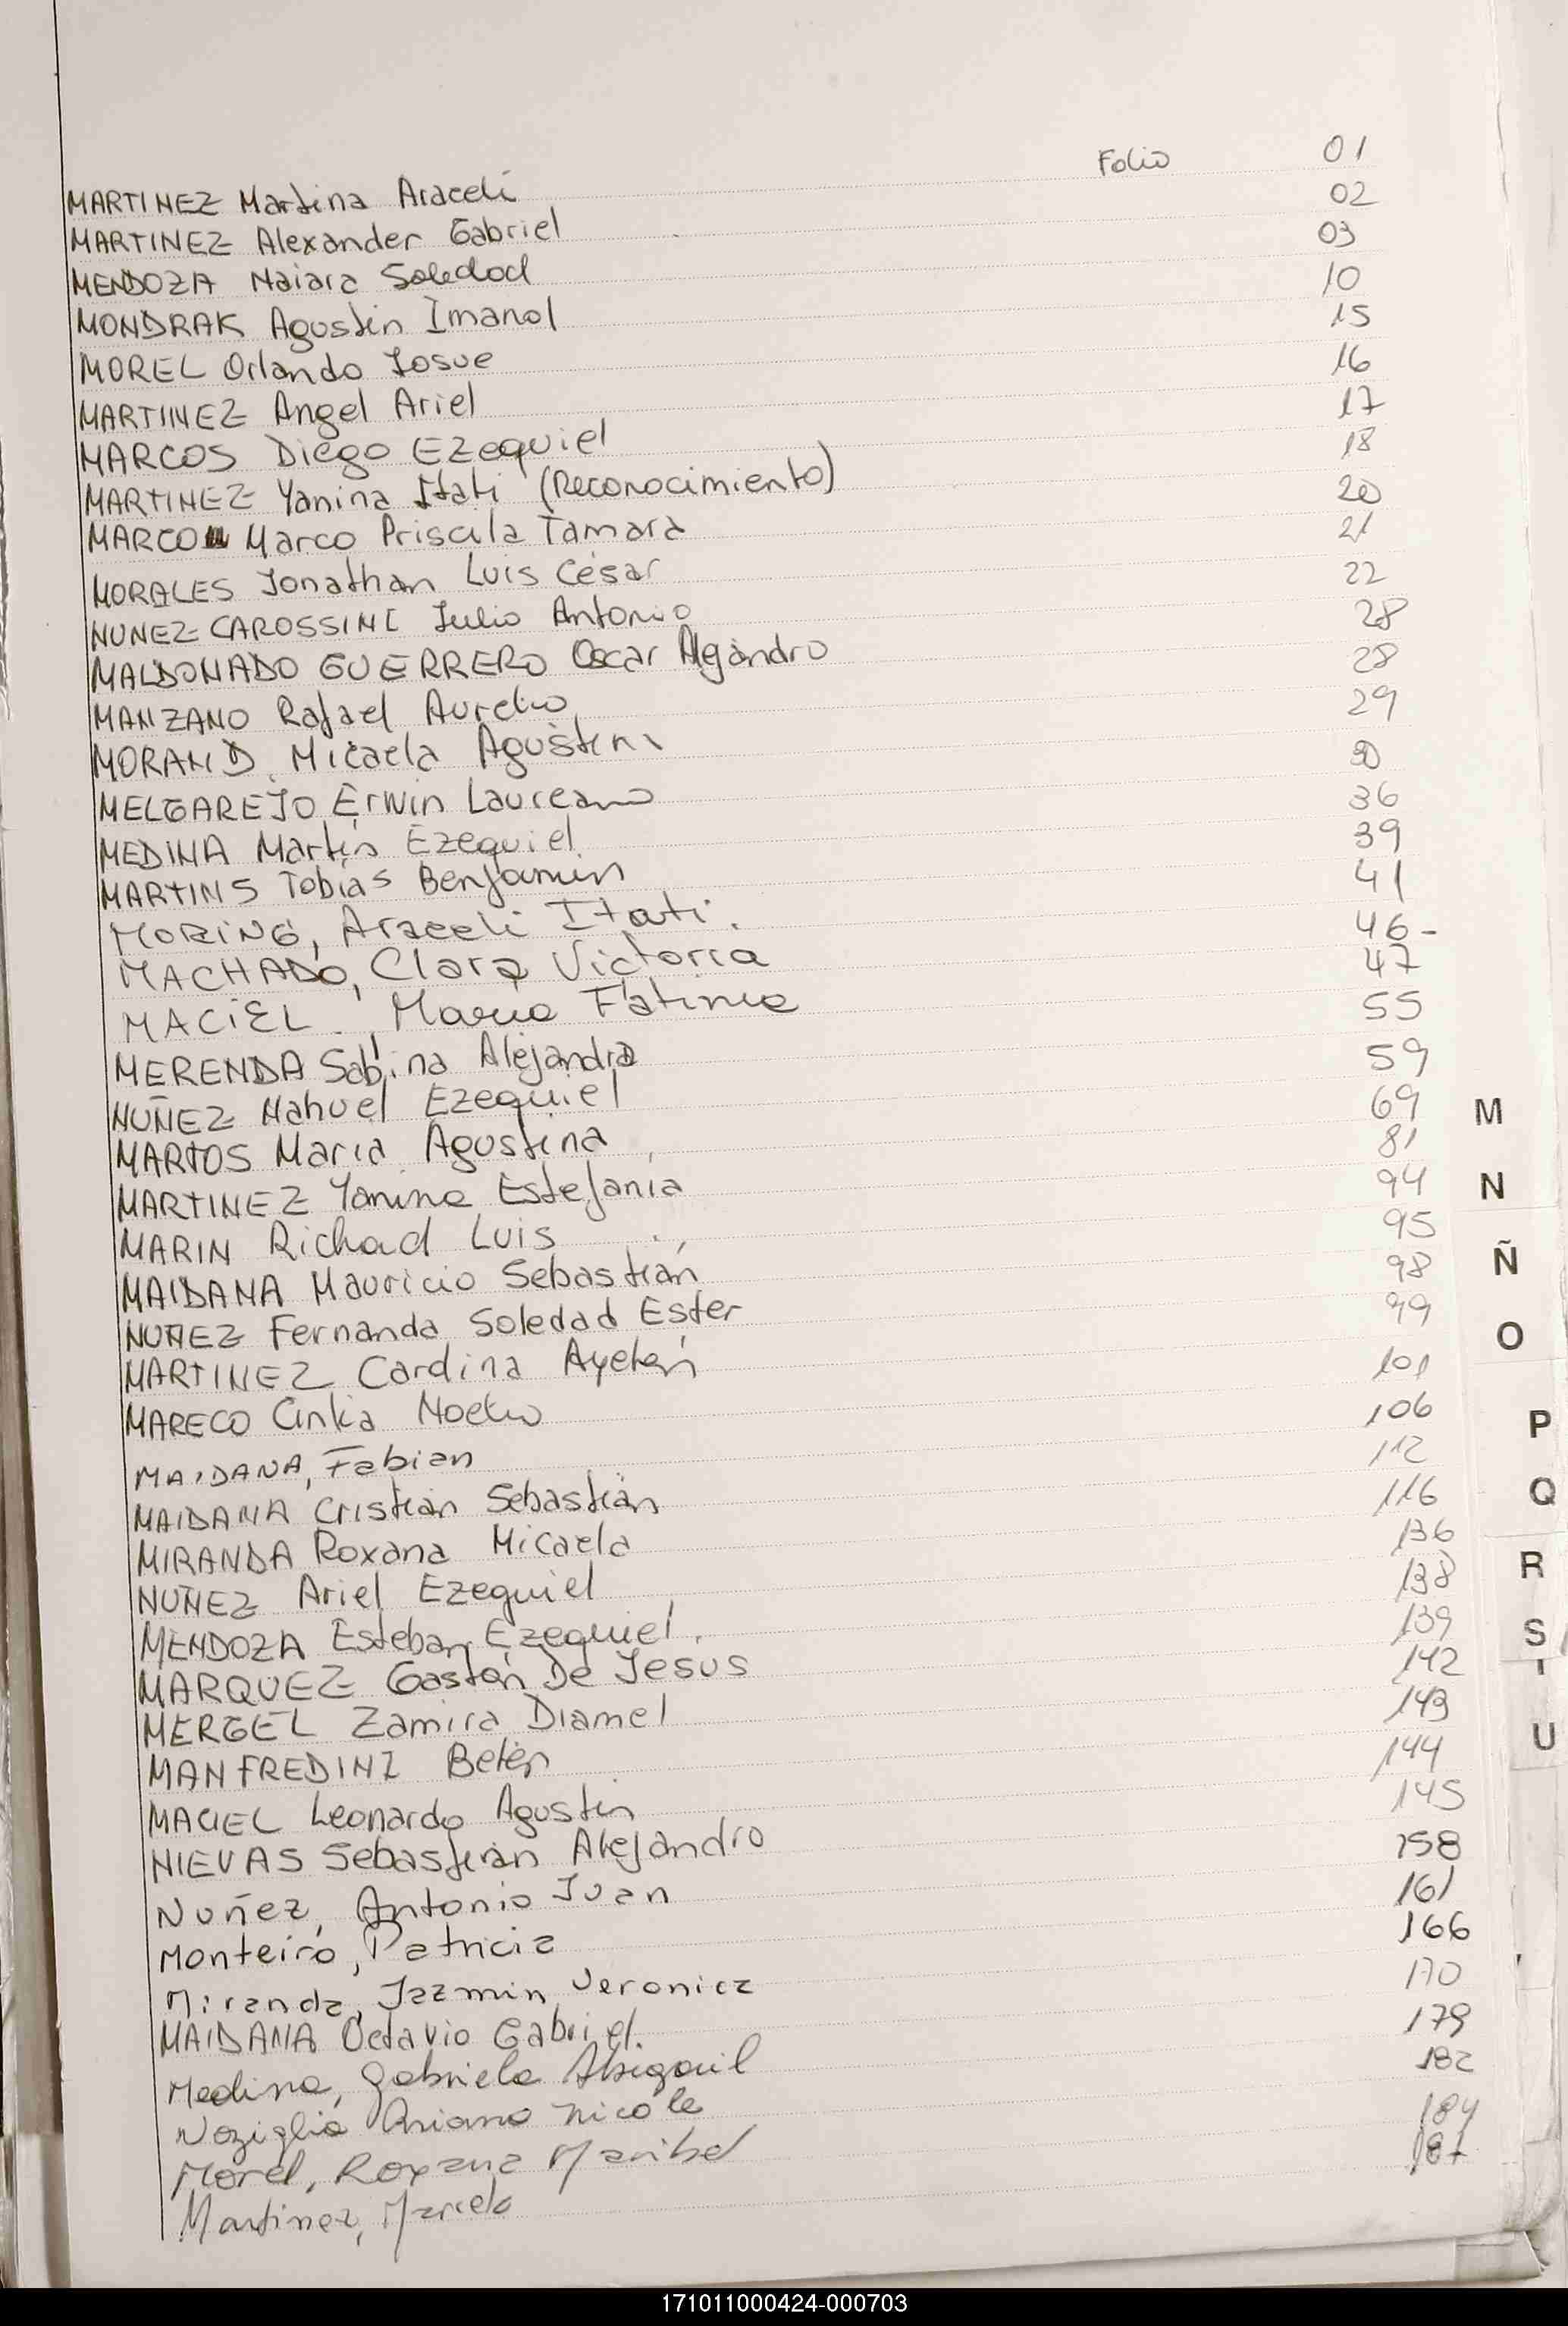 MARTINEZ Martina Araceli Folio 01
MARTINEZ Alexander Gabriel 02
MENDOZA Naiara Soledad 03
MONDRAK Agustin Imanol 10
MOREL Orlando Josue 15
MARTINEZ Angel Ariel 16
MARCOS Diego Ezequiel 17
MARTINEZ Yanina Itati (Reconocimiento) 18
MARCO Marco Priscila Tamara 20
MORALES Jonathan Luis César 21
NUNEZ CAROSSINI Julio Antonio 22
MALDONADO GUERRERO Oscar Alejandro 28
MANZANO Rafael Aurelio 28
MORAND Micaela Agustina 29
MELGAREJO Erwin Laureano 30
MEDINA Martín Ezequiel 36
MARTINS Tobías Benjamin 39
MORING, Araceli Itati. 41
MACHADO, Clara Victoria 46-
MACIEL, Maria Fatima 47
MERENDA Sabrina Alejandra 55
NUÑEZ Nahuel Ezequiel 59
MARTOS Maria Agustina 69
MARTINEZ Yanina Estefania 81
MARIN Richad Luis 94
MAIDANA Mauricio Sebastián 95
NUÑEZ Fernanda Soledad Ester 98
MARTINEZ Carolina Ayelén 99
MARECO Cinkia Noelia 101
MAIDANA, Fabian 106
MAIDANA Cristian Sebastián 112
MIRANDA Roxana Micaela 116
NUÑEZ Ariel Ezequiel 136
MENDOZA Esteban Ezequiel. 138
MARQUEZ Gastón De Jesus 139
MERGEL Zamira Diamel 142
MANFREDINI Belén 143
MACIEL Leonardo Agustin 144
NIEVAS Sebastián Alejandro 145
Nuñez, Antonio Juan 158
Monteiro, Patricia 161
Miranda, Jazmin Veronica 166
MAIDANA Octavio Gabriel. 170
Medina, Gabriela Abigail 179
Noziglia Ariana Nicole 182
Morel, Roxana Maribel 184
Martinez, Marcelo 187
M
N
Ñ
O
P
Q
R
S
T
U
171011000424-000703